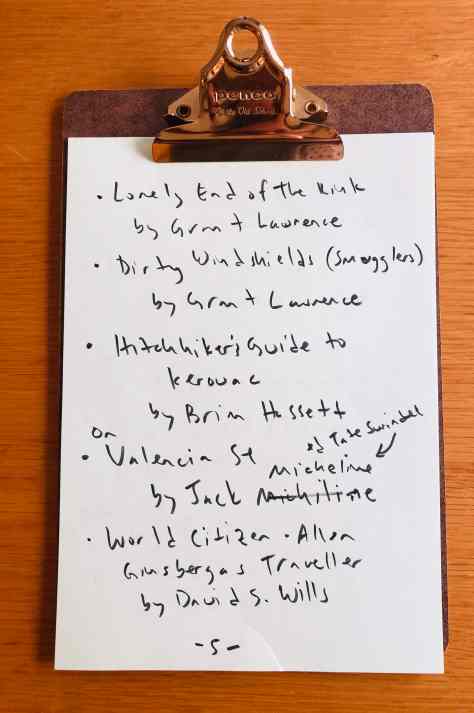 penco
• Lonely End of the Rink
by Grant Lawrence
• Dirty Windshields (Smugglers)
by Grant Lawrence
• Hitchhiker's Guide to
Kerouac
by Brian Hassett
on
• Valencia St
ed Tate Swindell
Micheline
by Jack
• World Citizen - Allen
Ginsberg as Traveller
by David S. Wills
- 5 -